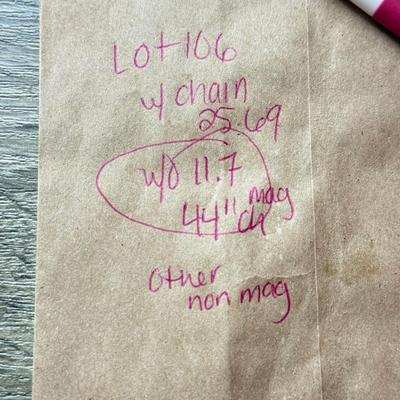 Lot 106
w/ chain
25.69
w/o 11.7
44" mag
ch
other
non mag